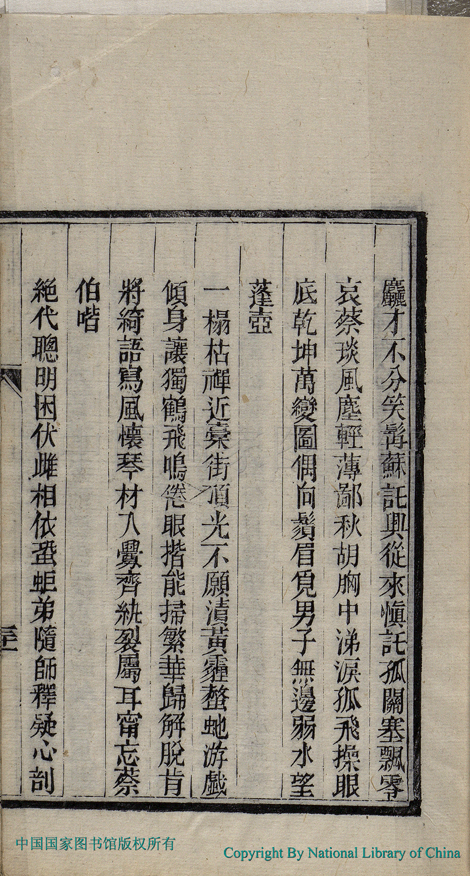 麤才不分笑髯蘇託興從來慎託孤關塞飄零
哀蔡琰風塵輕薄鄙秋胡胸中涕淚孤飛操眼
底乾坤萬變圖偶向鬚眉覓男子無邊弱水望
蓬壺
一榻枯禪近藁街頂光不願漬黃霾螫虵游戲
傾身讓獨鶴飛鳴倦眼揩能掃繁華歸解脫肯
將綺語寫風懷琴材入爨齊紈裂屬耳甯忘蔡
伯喈
絕代聰明困伏雌相依蛩蚷弟隨師釋疑心剖
中国国家图书馆版权所有
Copyright By National Library of China